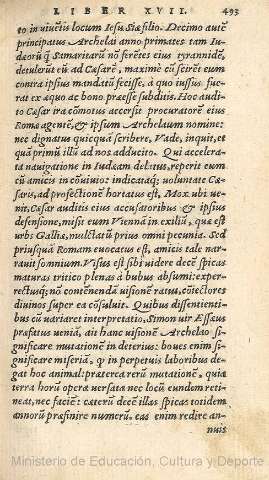 LIBER XVII. 493
to in viuẽtis locum Iesu Siæ filio. Decimo autẽ
principatus Archelai anno primates tam Iu-
dæorũ q̃ Samaritarũ nõ ferẽtes eius tyrannidẽ,
detulerũt eũ ad Cæsarẽ, maximè cũ scirẽt eum
contra ipsius mandatũ fecisse, à quo iussus fue-
rat ex æquo ac bono præesse subditis. Hoc audi-
to Cæsar ira cõmotus accersit procuratorẽ eius
Romæ agentẽ, & ipsum Archelaum nomine:
nec dignatus quicquã scribere, Vade, inquit, et
quã primũ illũ ad nos adducito. Qui accelera-
ta nauigatione in Iudæam delatus, reperit eum
cũ amicis in cõuiuio: indicataq́; voluntate Cæ-
saris, ad profectionẽ hortatus est. Mox vbi ve-
nit, Cæsar auditis eius accusatoribus & ipsius
defensione, misit eum Viennã in exiliũ, quæ est
vrbs Galliæ, mulctatũ prius omni pecunia. Sed
priusquã Romam euocatus est, amicis tale nar-
rauit somnium. Visus est sibi videre decẽ spicas
maturas tritico plenas à bubus absumi: exper-
rectusq́; nõ contẽnendã visionẽ ratus, cõiectores
diuinos super ea cõsuluit. Quibus dissentienti-
bus cũ variaret interpretatio, Simon vir Essæus
præfatus veniã, ait hanc visionẽ Archelao si-
gnificare mutationẽ in deterius: boues enim si-
gnificare miseriã, q̃ in perpetuis laboribus de-
gat hoc animal: præterea rerũ mutationẽ, quia
terra horũ opera versata nec locũ eundem reti-
neat, nec faciẽ: cæterũ decẽ illas spicas totidem
annorũ præfinire numerũ. eas enim redire an-
nuis
Ministerio de Educación, Cultura y Deporte